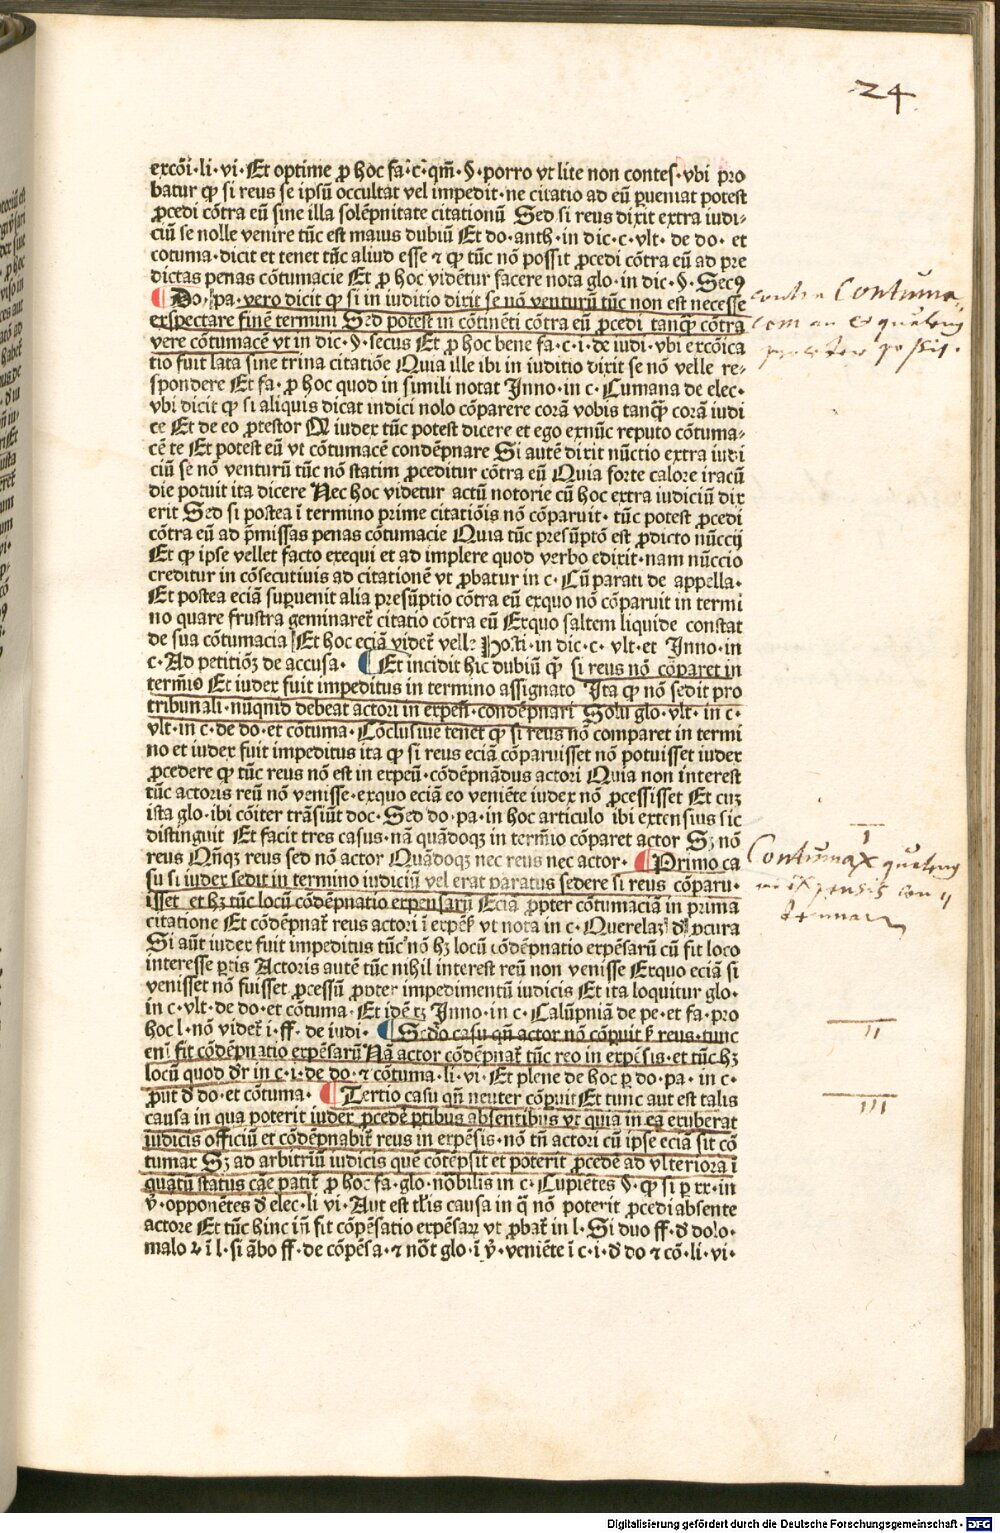 24
excōi·li·vi·Et optime ꝓ hoc fa·c·qm̄·§·porro vt lite non contes·vbi pro
batur ꝙ si reus se ipsū occultat vel impedit·ne citatio ad eū ꝑueniat potest
ꝓcedi cōtra eū sine illa solēpnitate citationū Sed si reus dixit extra iudi⸗
ciū se nolle venire tūc est maius dubiū Et do·anth·in dic·c·vlt·de do·et
cōtuma·dicit et tenet tūc aliud esse ⁊ ꝙ tūc nō possit ꝓcedi cōtra eū ad pre
dictas penas cōtumacie Et ꝓ hoc videntur facere nota glo·in dic·§·Secꝰ
Do·pa·vero dicit ꝙ si in iuditio dixit se nō venturū tūc non est necesse
exspectare finē termini Sed potest in cōtinēti cōtra eū ꝓcedi tanqꝫ cōtra
vere cōtumacē vt in dic·§·secus Et ꝓ hoc bene fa·c·i·de iudi·vbi excōica
tio fuit lata sine trina citatiōe Quia ille ibi in iuditio dixit se nō velle re⸗
spondere Et fa·ꝓ hoc quod in simili notat Inno·in c·Cumana de elec·
vbi dicit ꝙ si aliquis dicat iudici nolo cōparere corā vobis tanqꝫ corā iudi
ce Et de eo ꝓtestor Qꝛ iudex tūc potest dicere et ego exnūc reputo cōtuma⸗
cē te Et potest eū vt cōtumacē condēpnare Si autē dixit nūctio extra iudi
ciū se nō venturū tūc nō statim ꝓceditur cōtra eū Quia forte calore iracū
die potuit ita dicere Nec hoc videtur actū notorie cū hoc extra iudiciū dix
erit Sed si postea ī termino prime citatiōis nō cōparuit·tūc potest ꝓcedi
cōtra eū ad p̄missas penas cōtumacie Quia tūc presūptō est ꝓdicto nūccij
Et ꝙ ipse vellet facto exequi et ad implere quod verbo edixit·nam nūccio
creditur in cōsecutiuis ad citationē vt ꝓbatur in c·Cū parati de appella·
Et postea eciā supꝛuenit alia presūptio cōtra eū exquo nō cōparuit in termi
no quare frustra geminaret̄ citatio cōtra eū Exquo saltem liquide constat
de sua cōtumacia Et hoc eciā videt̄ velle Hosti·in dic·c·vlt·et Inno·in
c·Ad petitiōꝫ de accusa· Et incidit hic dubiū ꝙ si reus nō cōparet in
termīo Et iudex fuit impeditus in termino assignato Ita ꝙ nō sedit pro
tribunali·nūqnid debeat actori in expen̄·condēpnari Solu glo·vlt·in c·
vlt·in c·de do·et cōtuma·Cōclusiue tenet ꝙ si reus nō comparet in termi
no et iudex fuit impeditus ita ꝙ si reus eciā cōparuisset nō potuisset iudex
ꝓcedere ꝙ tūc reus nō est in expen̄·cōdēpnādus actori Quia non interest
tūc actoris reū nō venisse·exquo eciā eo veniēte iudex nō ꝓcessisset Et cuꝫ
ista glo·ibi cōiter trāsiūt doc·Sed do·pa·in hoc articulo ibi extensius sic
distinguit Et facit tres casus·nā quādoqꝫ in termīo cōparet actor Sꝫ nō
reus Qn̄qꝫ reus sed nō actor Quādoqꝫ nec reus nec actor· Primo ca
su si iudex sedit in termino iudiciū vel erat paratus sedere si reus cōparu⸗
isset et hꝫ tūc locū cōdēpnatio expensarū Eciā ꝓpter cōtumaciā in prima
citatione Et cōdēpnat̄ reus actori ī expēs̄ vt nota in c·Querelaꝫ d̄ ꝓcura
Si aūt iudex fuit impeditus tūc nō hꝫ locū cōdēpnatio expēsarū cū fit loco
interesse ꝑtis Actoris autē tūc nihil interest reū non venisse Exquo eciā si
venisset nō fuisset ꝓcessū ꝓpter impedimentū iudicis Et ita loquitur glo·
in c·vlt·de do·et cōtuma·Et idē tꝫ Inno·in c·Calūpniā de pe·et fa·pro
hoc l·nō videt̄ ī·ff·de iudi· Scd̄o casu qn̄ actor nō cōpuit s̄ reus·tunc
eni fit cōdēpnatio expēsarū Nā actor cōdēpnat̄ tūc reo in expēsis·et tūc hꝫ
locū quod dr̄ in c·i·de do·⁊ cōtuma·li·vi·Et plene de hoc ꝑ do·pa·in c·
ꝓut d̄ do·et cōtuma· Tertio casu qn̄ neuter cōpuit Et tunc aut est talis
causa in qua poterit iudex ꝓcedē ꝑtibus absentibus vt quia in ea exuberat
iudicis officiū et cōdēpnabit̄ reus in expēsis·nō tn̄ actori cū ipse eciā sit cō
tumax Sꝫ ad arbitriū iudicis quē cōtēpsit et poterit ꝓcedē ad vlteriora ī
quātū status cāe patit̄ ꝓ hoc fa·glo·nōbilis in c·Cupiētes §·ꝙ si ꝑ xx·in
v̄·opponētes d̄ elec·li vi·Aut est tl̄is causa in q̄ nō poterit ꝓcedi absente
actore Et tūc hinc in̄ fit cōpēsatio expēsaꝝ vt ꝓbat̄ in l·Si duo ff·d̄ dolo·
malo ⁊ ī l·si ābo ff·de cōpēsa·⁊ nōt glo·ī v̄·veniēte ī c·i·d̄ do ⁊ cō·li·vi·
contra Contuma⸗
cem an et quatenꝰ
procedi possit.
I
Contumax quatenꝰ
in expensis con⸗
demnatur
II
III
Digitalisierung gefördert durch die Deutsche Forschungsgemeinschaft - DFG